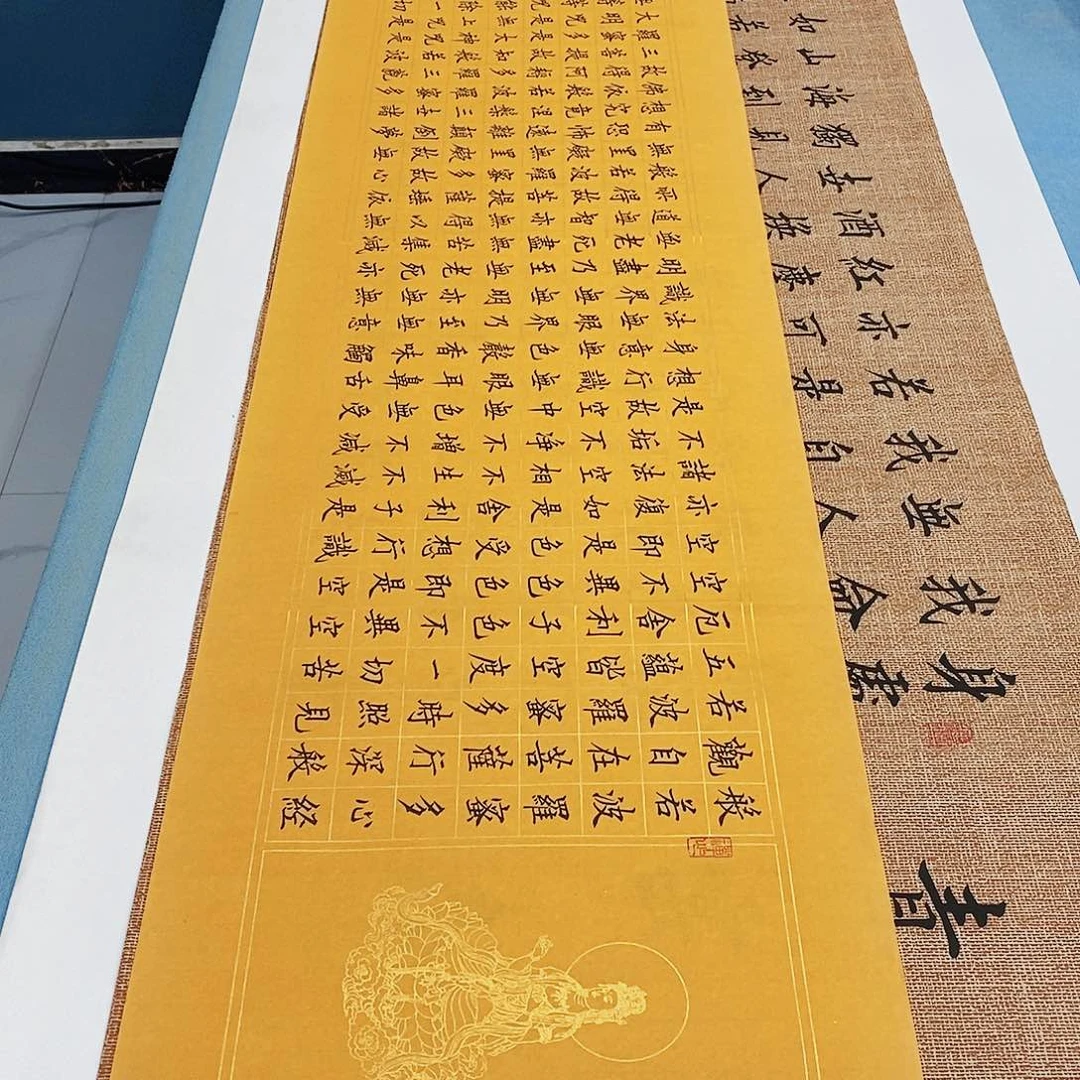 般若波羅蜜多心經
觀自在菩薩行深般
若波羅蜜多時照見
五蘊皆空度一切苦
厄舍利子色不異空
空不異色色即是空
空即是色受想行識
亦復如是舍利子是
諸法空相不生不滅
不垢不淨不增不減
是故空中無色無受
想行識無眼耳鼻舌
身意無色聲香味觸
法無眼界乃至無意
識界無無明亦無無
明盡乃至無老死亦
無老死盡無苦集滅
道無智亦無得以無
所得故菩提薩埵依
般若波羅蜜多故心
無罣礙無罣礙故無
有恐怖遠離顛倒夢
想究竟涅槃三世諸
佛依般若波羅蜜多
故得阿耨多羅三藐
三菩提故知般若波
羅蜜多是大神咒是
大明咒是無上咒是
書
身
我命
無人
我自
若是
亦可
紅
酒換